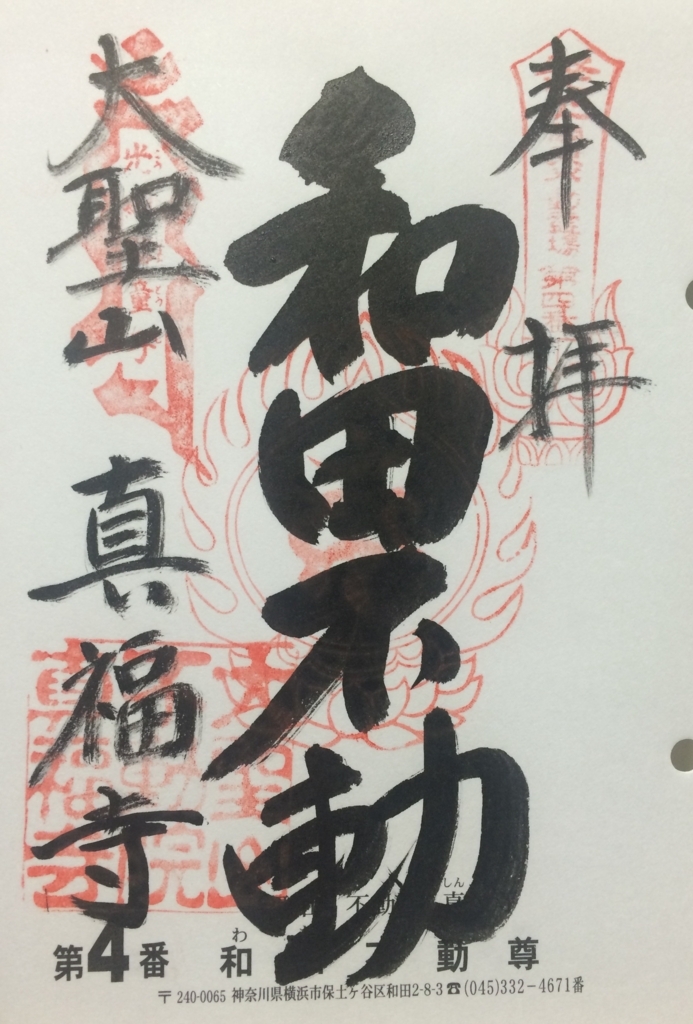 奉拝
和田不動
大聖山 真福寺
第4番 和 不動尊
〒240-0065 神奈川県横浜市保土ヶ谷区和田2-8-3☎(045)332-4671番